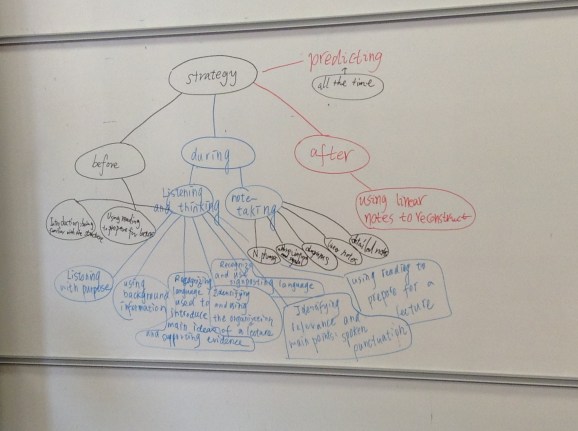 predicting
all the time
strategy
before
during
after
Listening
and thinking
note-
taking
using linear
notes to reconstruct
Using reading
to prepare for
linear notes
detailed notes
Listening
with purpose
using
background
information
Recognizing
language
used to
introduce
main ideas
and supporting evidence
Recognizing
and use
signposting language
Identifying
and using
the organization
of a lecture
Identifying
relevance and
main points: spoken
punctuation
using reading to
prepare for a
lecture